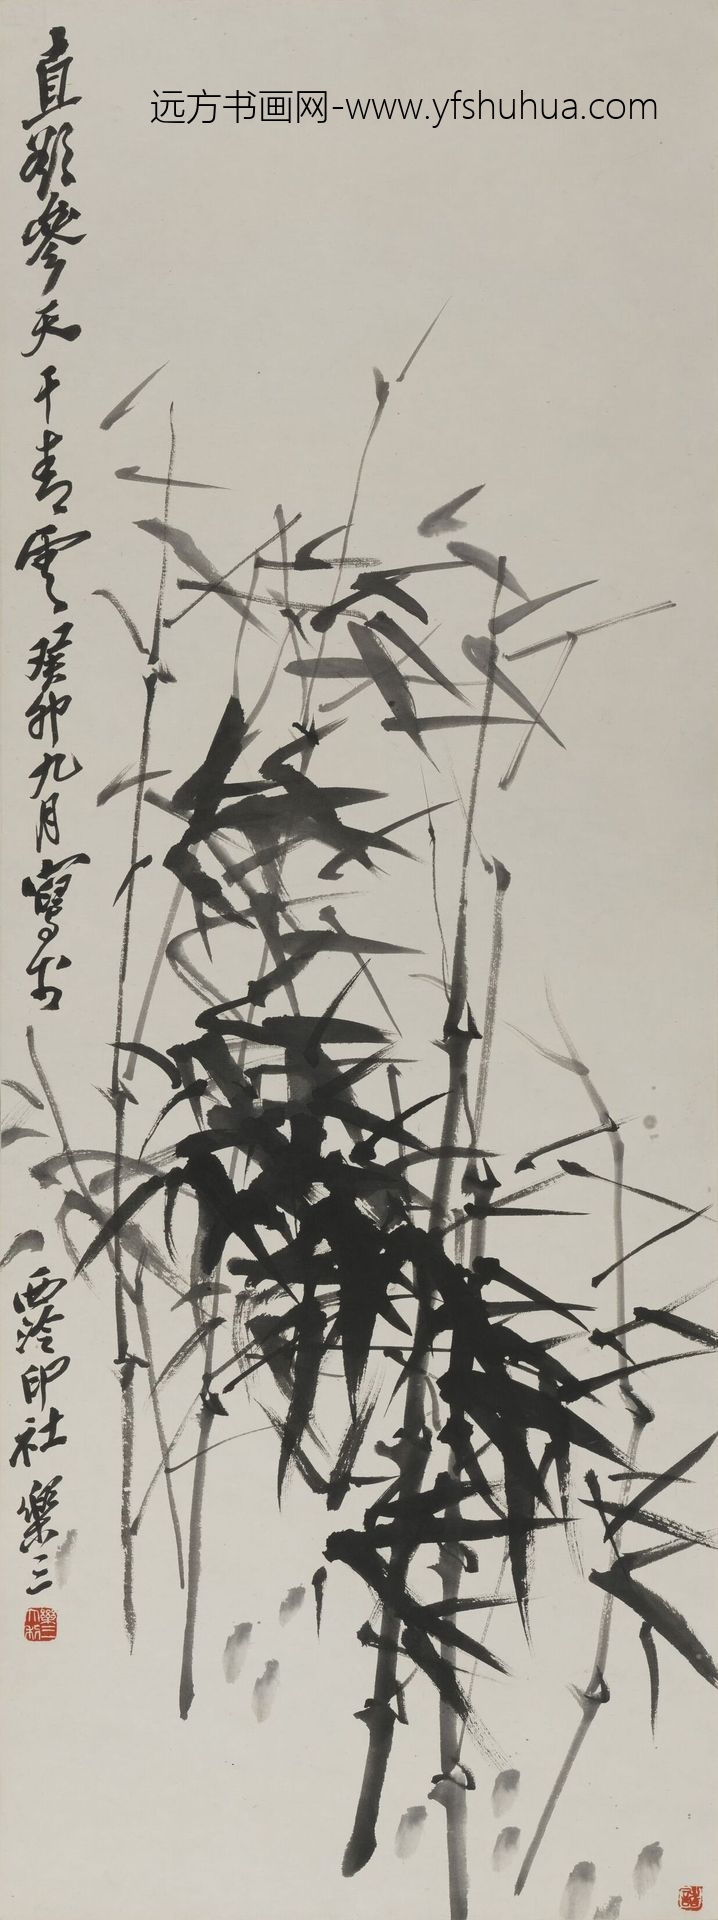 远方书画网-www.yfshuhua.com
直欲参天干青云癸卯九月寫于
西泠印社樂三